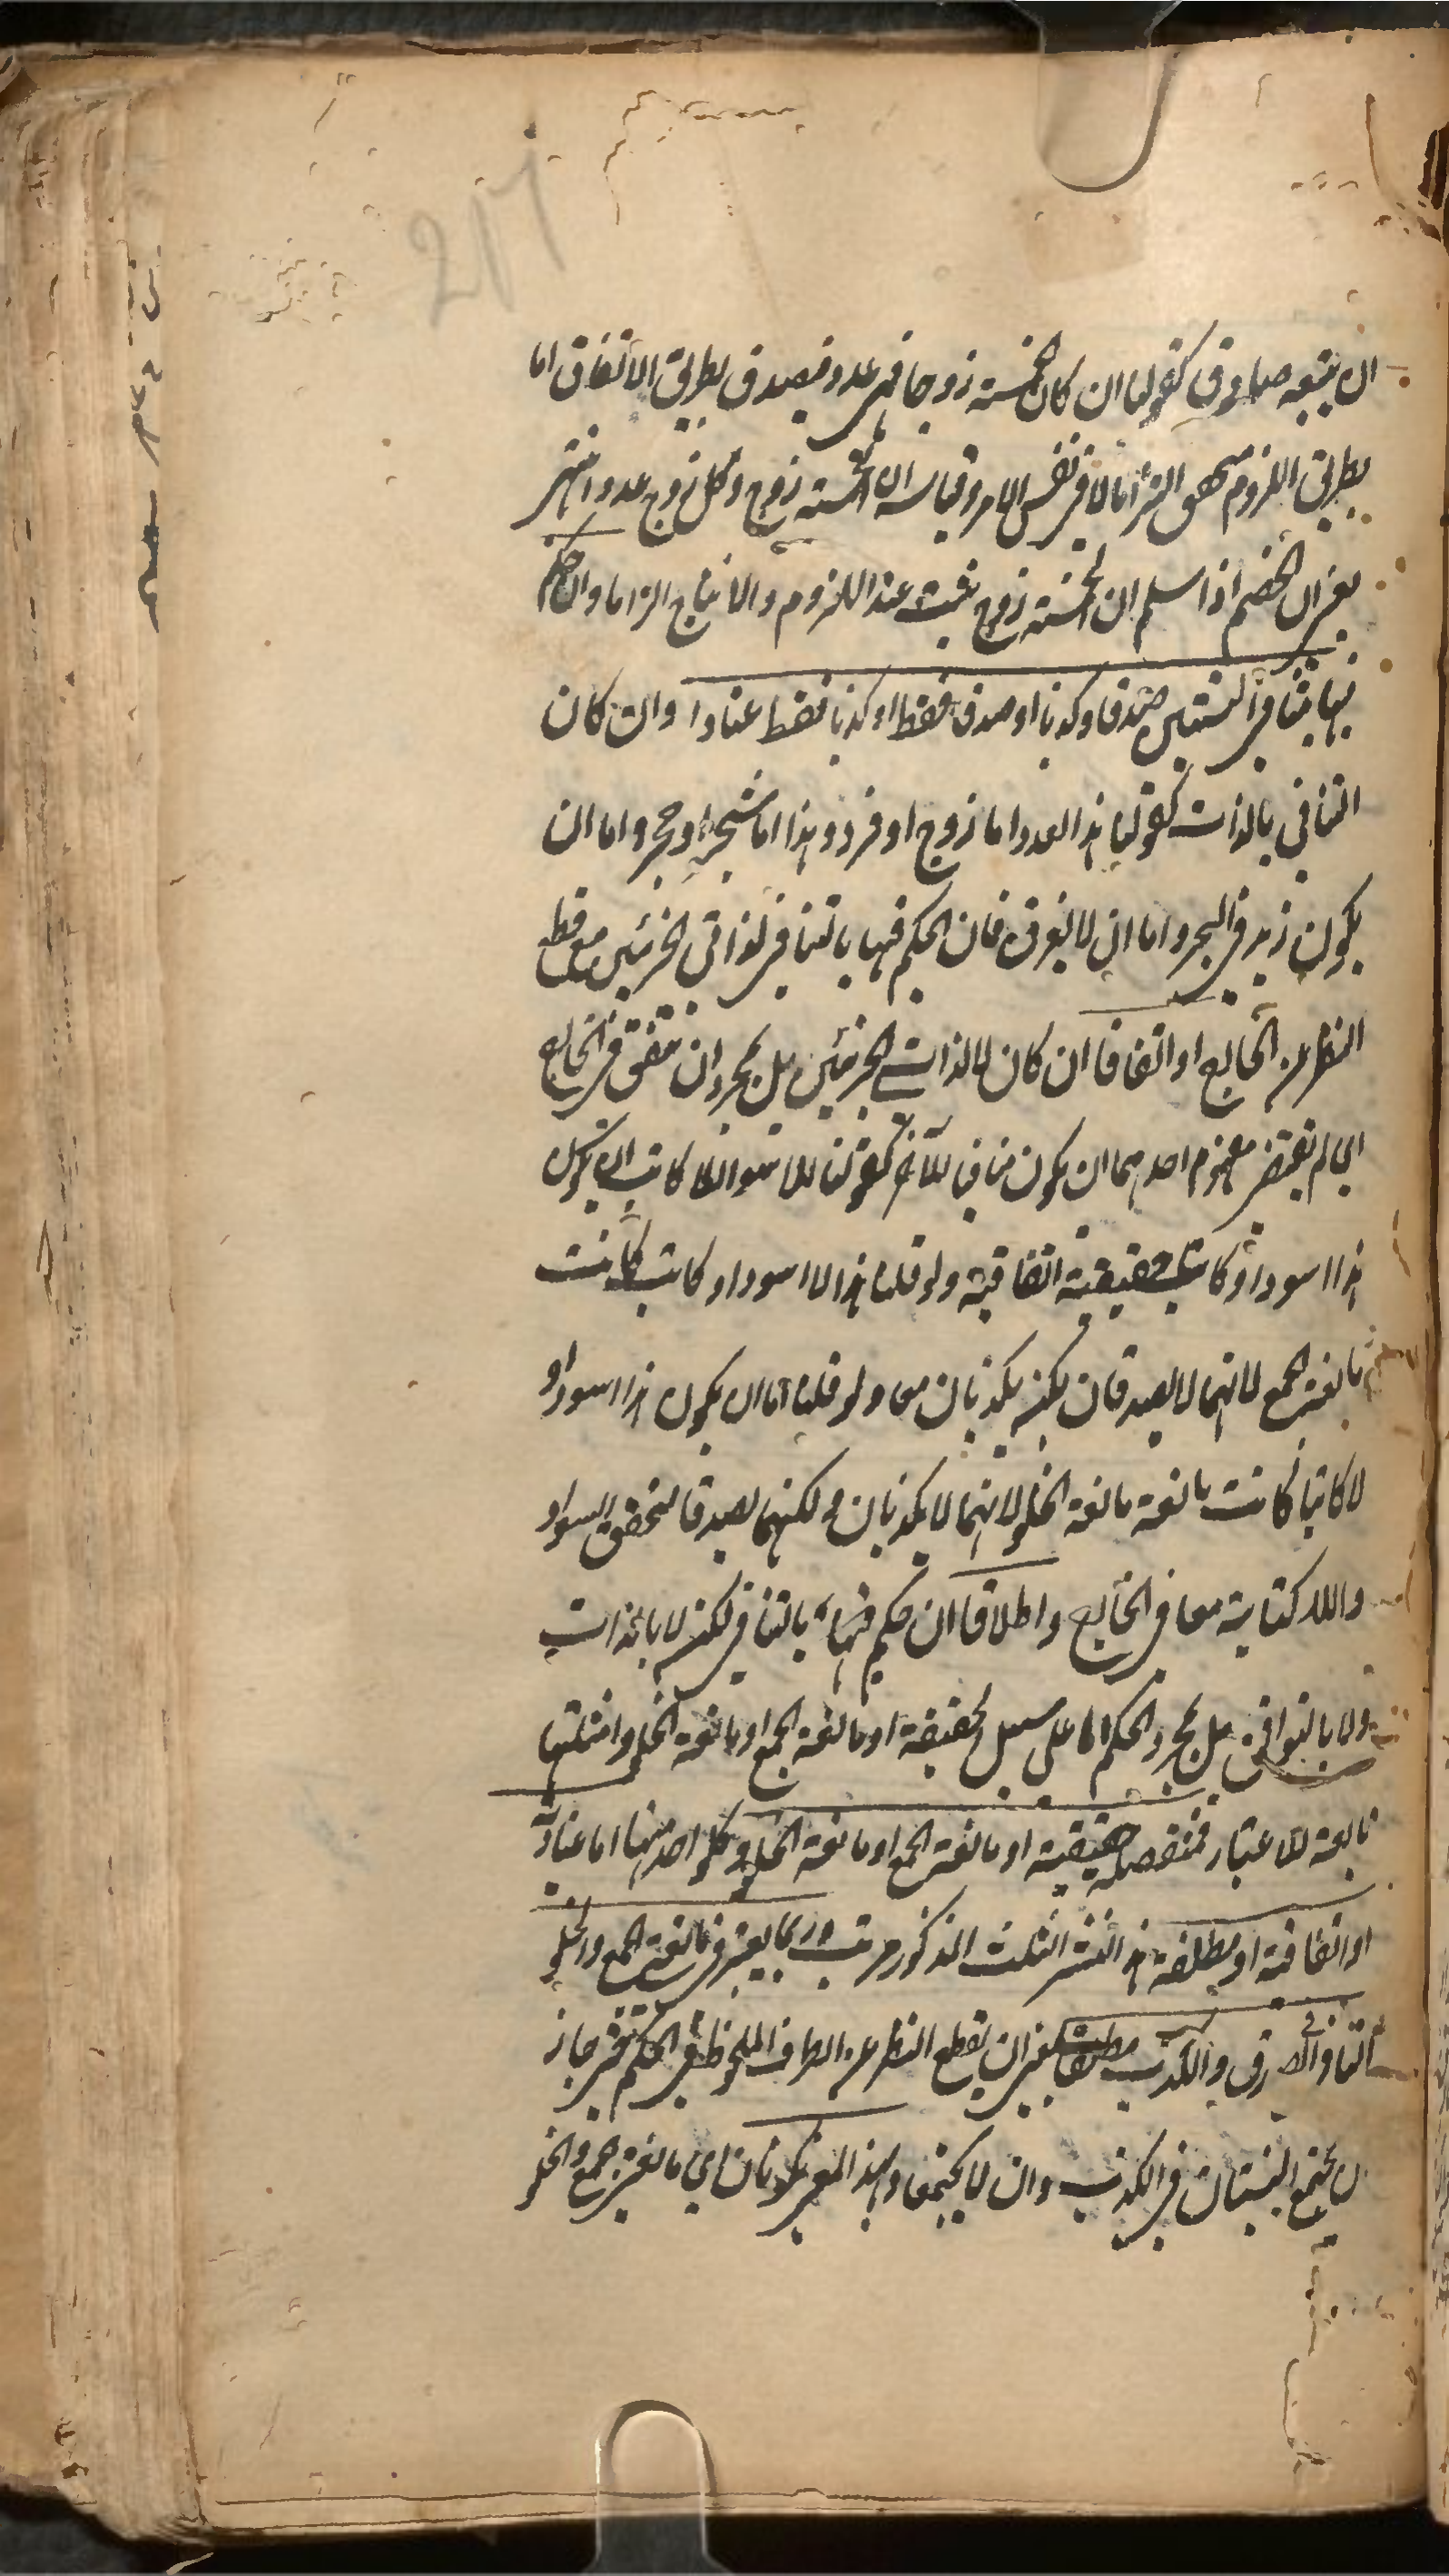 217
ان نتيجة صادق كقولنا ان كان الخمسة زوجا فهي عدد فيصدق بطريق الاتفاق اما
بطريق اللزوم فهو الزاما لا في نفس الامر وقياسه ان الخمسة زوج وكل زوج عدد انتهى
يعني ان الخصم اذا سلم ان الخمسة زوج يثبت عنده اللزوم والانتاج الزاما وان حكم
فيها بتنافي النسبتين صدقا وكذبا او صدقا فقط او كذبا فقط عنادا وان كان
التنافي بالذات كقولنا هذا العدد اما زوج او فرد وهذا اما شجر او حجر واما ان
يكون زيد في البحر واما ان لا يغرق فان الحكم فيها بالتنافي لذاتي الجزئين مع قطع
النظر عن الخارج او اتفاقا ان كان لا لذات الجزئين بل بمجرد ان يتفق في الخارج
اي لم يقتض مفهوم احدهما ان يكون منافيا للآخر كقولنا للاسود اللا كاتب ان يكون
هذا اسود او كاتبا حقيقية اتفاقية ولو قلنا هذا لا اسود او كاتب كانت
مانعة الجمع لانهما لا يصدقان لكنه يكذبان معا ولو قلنا اما ان يكون هذا اسود او
لا كاتبا كانت مانعة مانعة الخلو لانهما لا يكذبان ولكنهما يصدقا لتحقق السواد
واللا كتابة معا في الخارج واطلاقا ان حكم فيها بالتنافي لكنه لا بالذات
ولا بالتوافق بل بمجرد الحكم اما على سبيل الحقيقة او مانعة الجمع او مانعة الخلو وامثلتها
تابعة للاعتبار فمنفصلة حقيقية او مانعة الجمع او مانعة الخلو وكل واحد منها اما عنادية
او اتفاقية او مطلقة هذا النشر الثلث المذكور مرتب وربما يعتبر في مانعتي الجمع والخلو
التنافي في الصدق والكذب مطلقا يعني ان يقطع النظر عن الطرف الملحوظ في الحكم حتى جاز
ان يجتمع النسبتان في الكذب وان لا يجتمعا وبهذا المعنى يكونان اي مانعتي الجمع والخلو